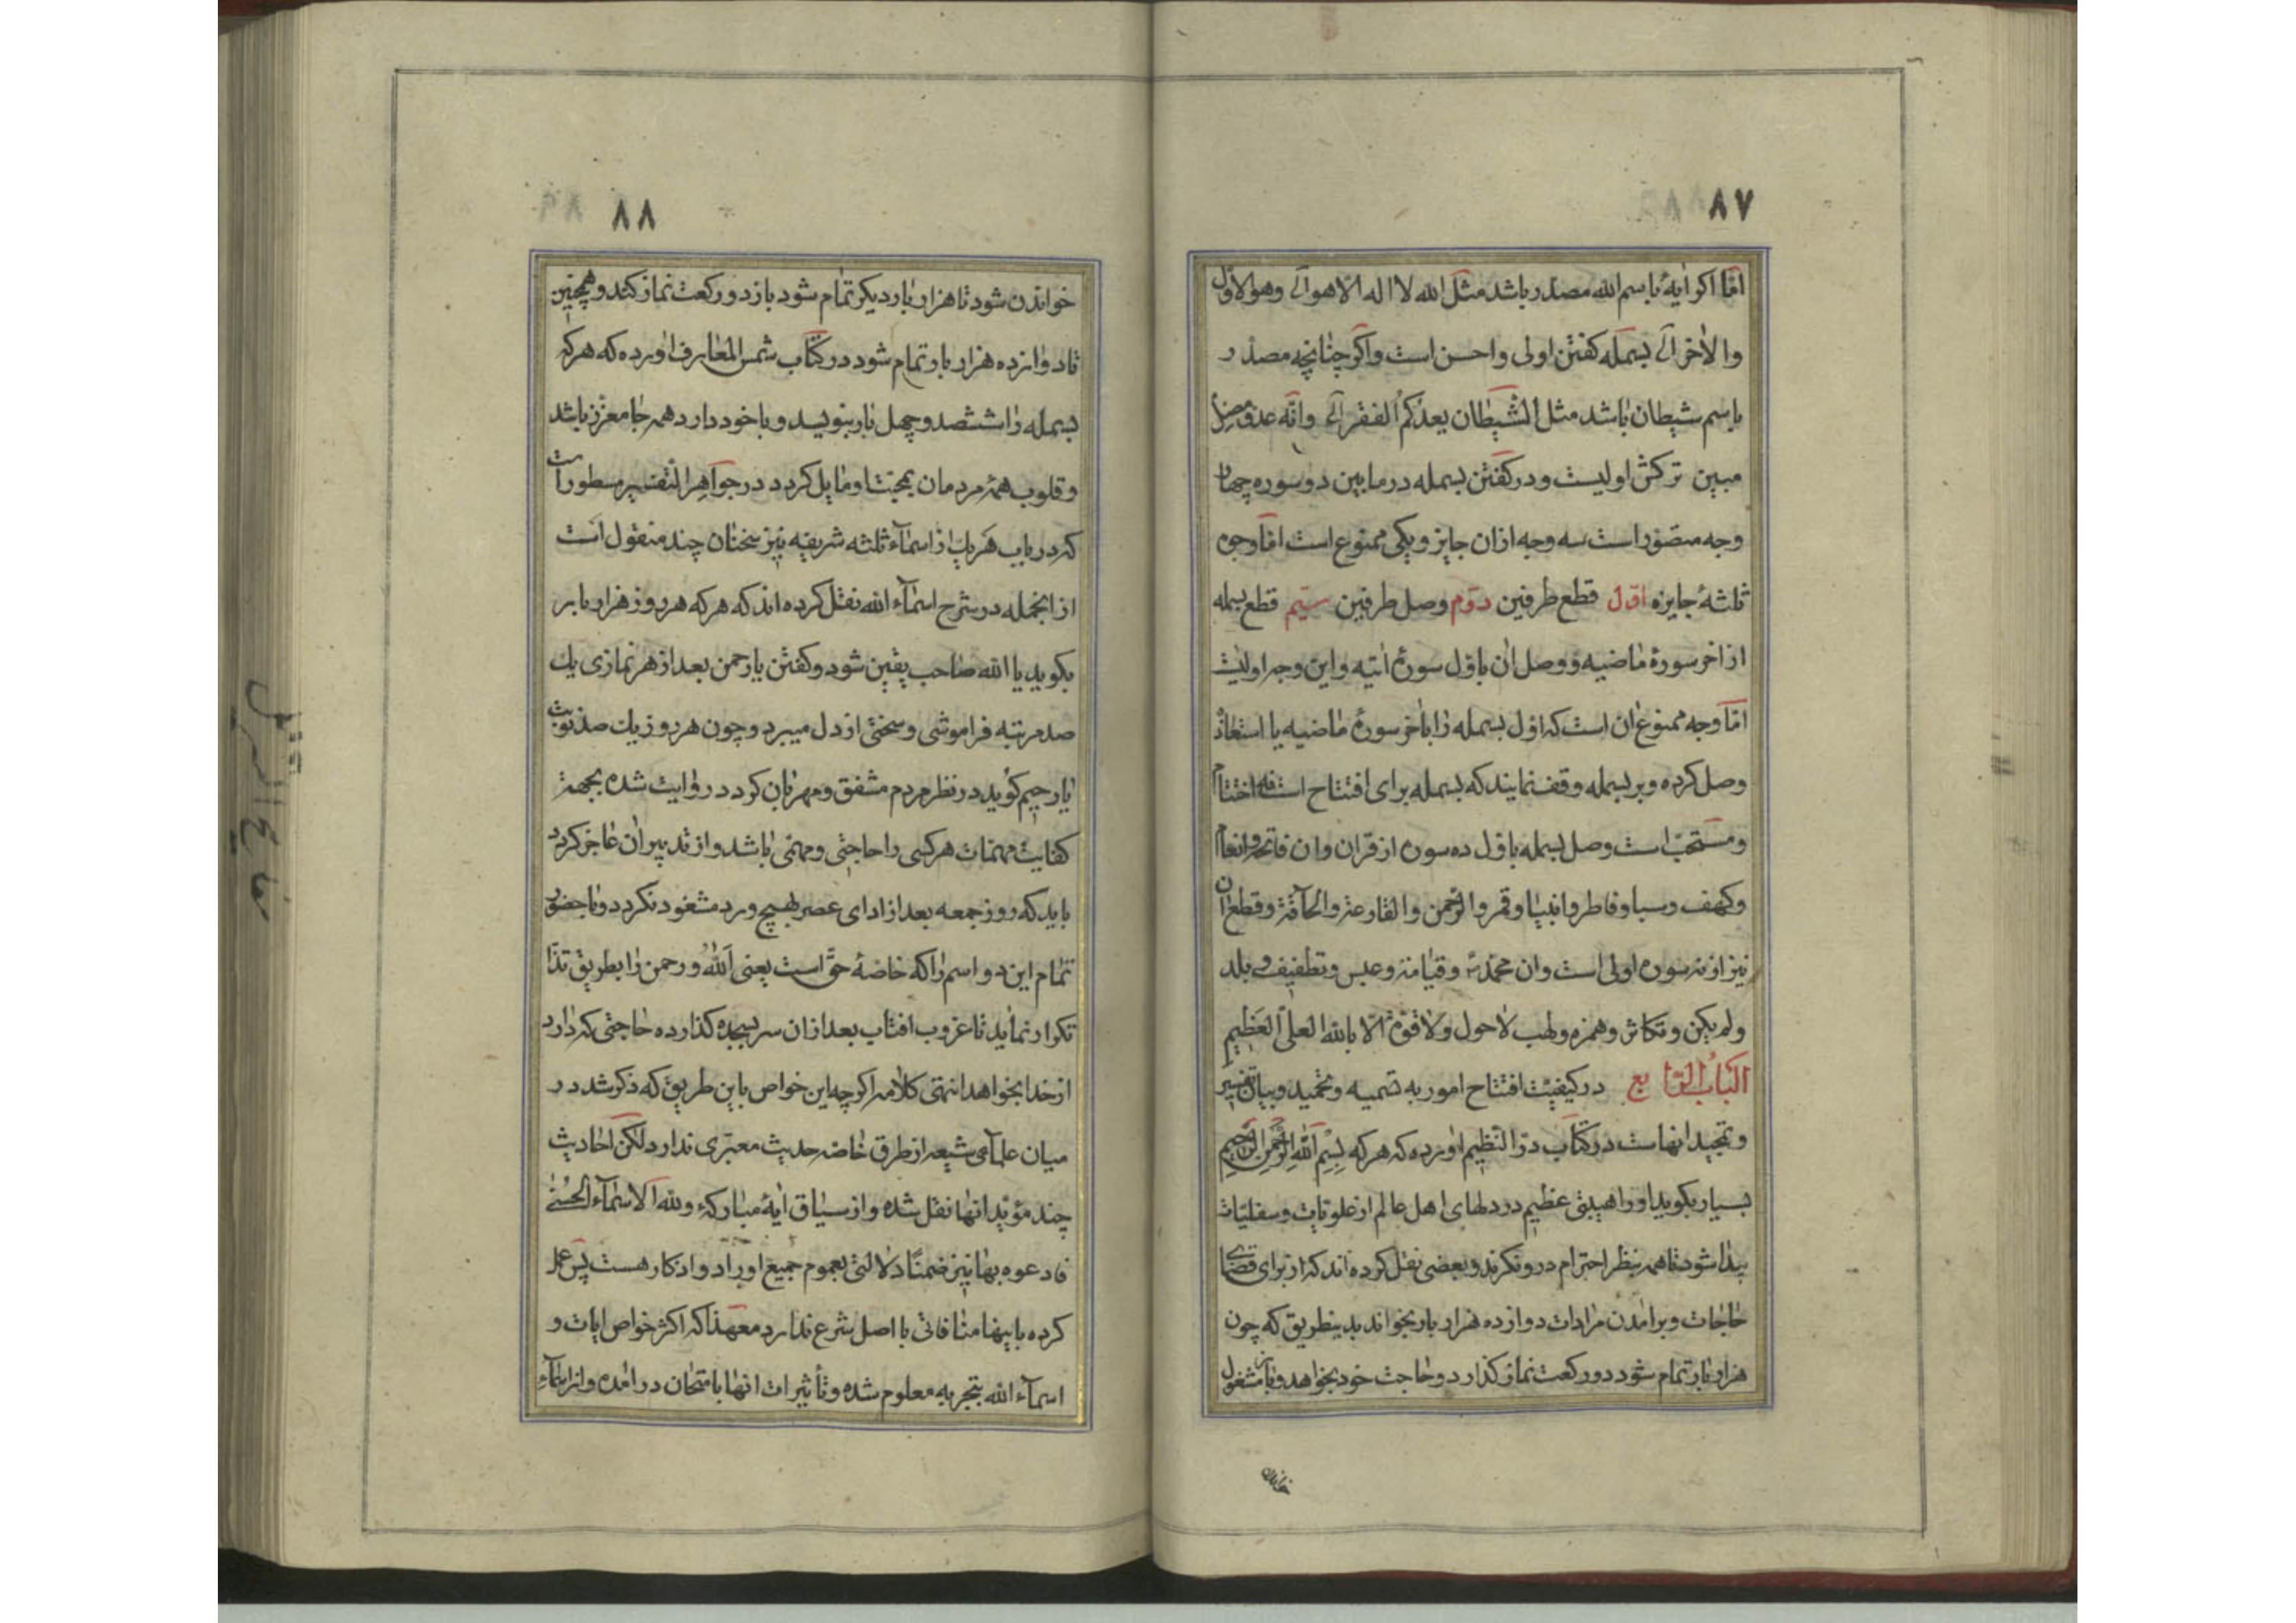 ۸۷
امّا اکر ایهٔ باسم الله مصدّر باشد مثل الله لا اله الّا هو الی وهو الاوّل
والاٰخر الی بسمله کفتن اولی واحسن است واکر چنانچه مصدّر
باسم شیطان باشد مثل الشّیطان یعدکم الفقر الی وانّه عدوّ مضلّ
مبین ترکش اولیست ودر کفتن بسمله در مابین دو سوره چهار
وجه متصوّر است سه وجه ازان جایز ویکی ممنوع است امّا وجوه
ثلثهٔ جایزه اوّل قطع طرفین دوّم وصل طرفین سیّم قطع بسمله
از اخر سورهٔ ماضیه ووصل ان باوّل سورهٔ اتیه واین وجه اولیست
امّا وجه ممنوع ان است که اوّل بسمله را باخر سورهٔ ماضیه یا استعاذه
وصل کرده وبر بسمله وقف نمایند که بسمله برای افتتاح است نه اختتام
ومستحبّ است وصل بسمله باوّل ده سوره از قران وان فاتحه وانعام
وکهف وسبا وفاطر وانبیا وقمر والرّحمن والقارعة والحاقّة وقطع ان
نیز از نه سوره اولی است وان محمّد وقیامة وعبس وتطفیف وبلد
ولم یکن وتکاثر وهمزه ولهب لاحول ولا قوّة الّا بالله العلیّ العظیم
الباب الرّابع در کیفیّت افتتاح امور به تسمیه وتحمید وبیان تفسیر
وتمجید انهاست در کتاب درّ النّظیم اورده که هر که بسم الله الرّحمن الرّحیم
بسیار بکوید اورا هیبتی عظیم در دلهای اهل عالم از علویّات وسفلیّات
پیدا شود تا همه بنظر احترام درو نکرند وبعضی نقل کرده اند که از برای قضای
حاجات وبرامدن مرادات دوازده هزار بار بخواند بدینطریق که چون
هزار بار تمام شود دو رکعت نماز کذارد وحاجت خود بخواهد وباز مشغول
خواندن
۸۸
خواندن شود تا هزار بار دیکر تمام شود باز دو رکعت نماز کند وهمچنین
تا دوازده هزار بار تمام شود در کتاب شمس المعارف اورده که هر که
بسمله را ششصد وچهل بار بنویسد وبا خود دارد همه جا معزّز باشد
وقلوب همهٔ مردمان بمحبّت او مایل کردد در جواهر التّفسیر مسطور است
که در باب هر یك از اسمآء ثلثه شریفه نیز سخنان چند منقول است
از انجمله در شرح اسمآء الله نقل کرده اند که هر که هر روز هزار بار
بکوید یا الله صاحب یقین شود وکفتن یا رحمن بعد از هر نمازی یك
صد مرتبه فراموشی وسختی از دل میبرد وچون هر روز یك صد نوبت
یا رحیم کوید در نظر مردم مشفق ومهربان کردد در روایت شده بجهة
کفایت مهمّات هر کسی را حاجتی ومهمّی باشد واز تدبیر ان عاجز کردد
باید که روز جمعه بعد از ادای عصر بهیچ ورد مشغول نکردد وبا حضور
تمام این دو اسم را که خاصّهٔ حقّ است یعنی الله ورحمن را بطریق ندا
تکرار نماید تا غروب افتاب بعد ازان سر بسجده کذارده حاجتی که دارد
از خدا بخواهد انتهی کلامه اکر چه این خواص باین طریق که ذکر شد در
میان علمآی شیعه از طرق خاصّه حدیث معتبری ندارد لکن احادیث
چند مؤیّد انها نقل شده واز سیاق ایهٔ مبارکهٔ ولله الاسمآء الحسنی
فادعوه بها نیز ضمنًا دلالتی بعموم جمیع اوراد واذکار هست پس عمل
کرده باینها منافاتی با اصل شرع ندارد معهذا که اکثر خواص ایات و
اسمآء الله بتجربه معلوم شده وتأثیرات انها بامتحان در امده واز اسمآء